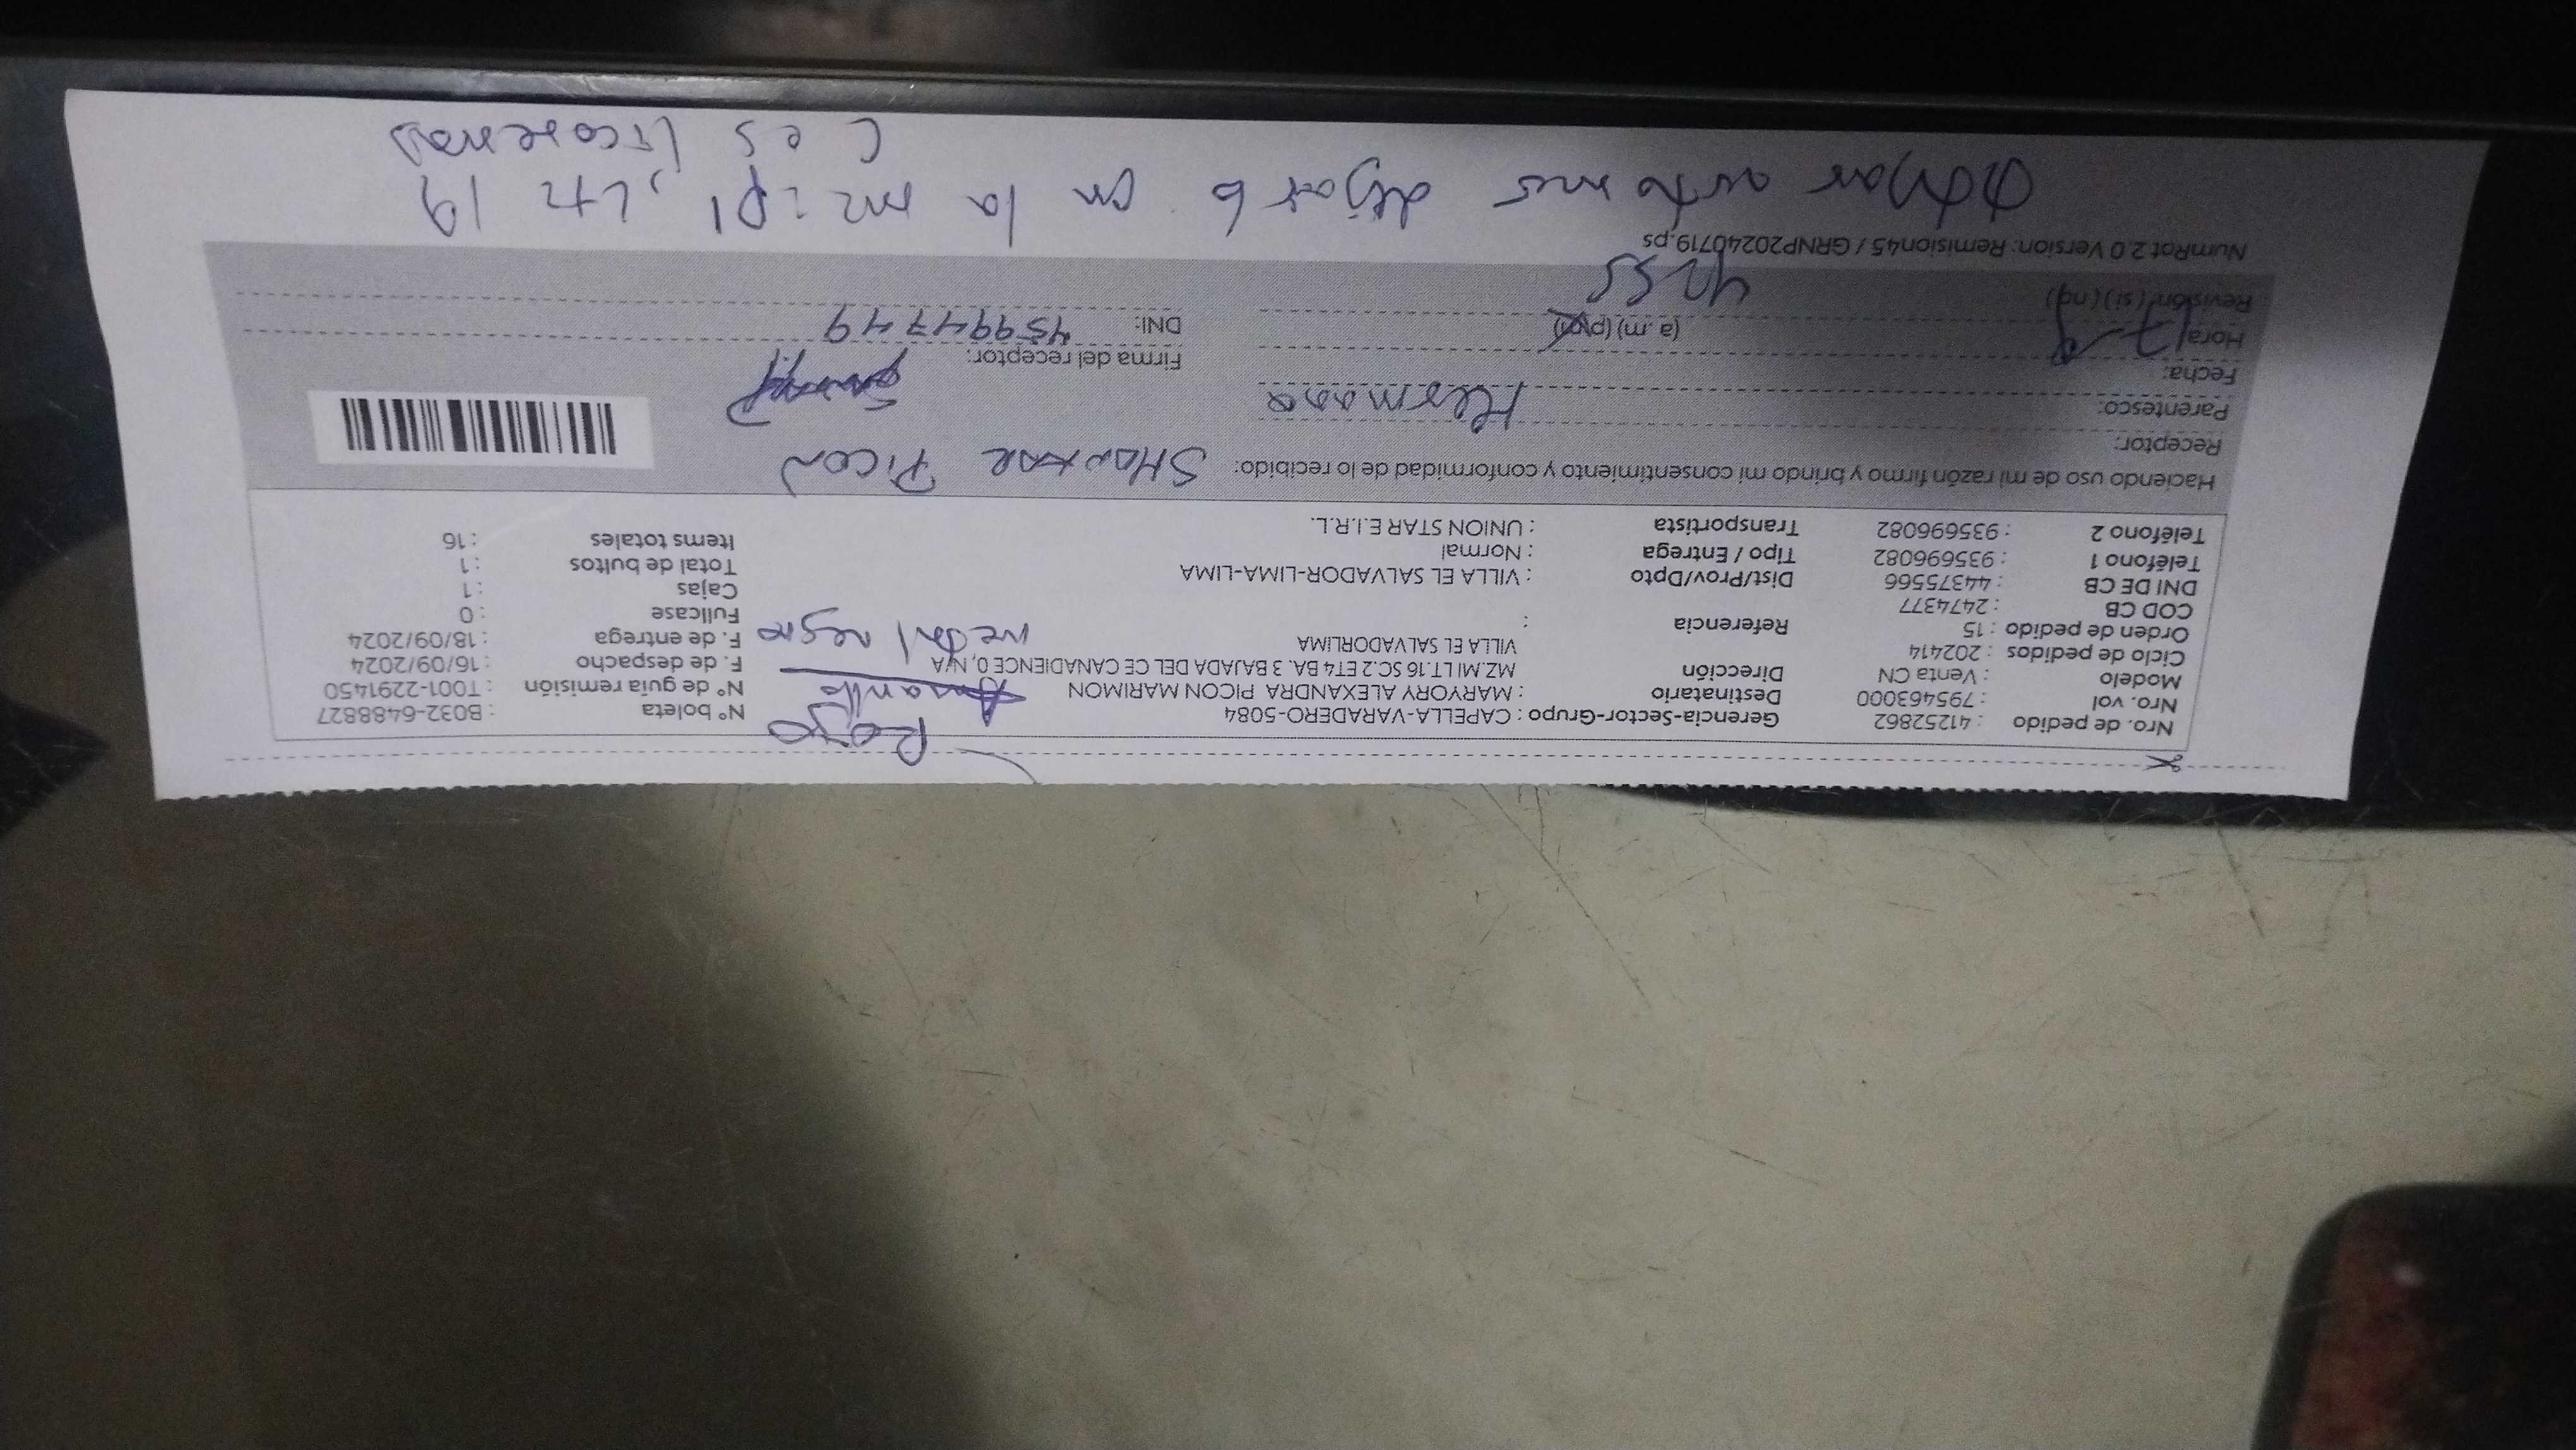 Nro. de pedido : 41252862 Gerencia-Sector-Grupo : CAPELLA-VARADERO-5084 Rojo Nº boleta : B032-6488827
Nro. vol : 795463000 Destinatario : MARYORY ALEXANDRA PICON MARIMON Amarillo Nº de guía remisión : T001-2291450
Modelo : Venta CN Dirección MZ.MI LT.16 SC.2 ET4 BA. 3 BAJADA DEL CE CANADIENCE 0, N/A F. de despacho : 16/09/2024
Ciclo de pedidos : 202414 VILLA EL SALVADORLIMA metal negro F. de entrega : 18/09/2024
Orden de pedido : 15 Referencia : Fullcase : 0
COD CB : 2474377 Cajas : 1
DNI DE CB : 44375566 Dist/Prov/Dpto : VILLA EL SALVADOR-LIMA-LIMA Total de bultos : 1
Teléfono 1 : 935696082 Tipo / Entrega : Normal Items totales : 16
Teléfono 2 : 935696082 Transportista : UNION STAR E.I.R.L.
Haciendo uso de mi razón firmo y brindo mi consentimiento y conformidad de lo recibido: PICON
Receptor:
Parentesco: Hermana
Fecha: Firma del receptor:
Hora: 17-9 (a.m) (p.m) DNI: 45994749
Revisión: (si) (no) 4255
NumRot 2.0 Version: Remision45 / GRNP20240719.ps
dejarlo en la mz: P1, Lt 19
es licorerias